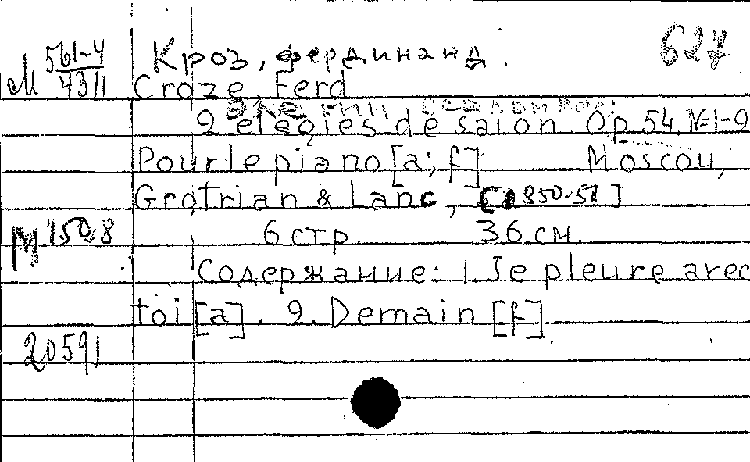 М 561-4/4311 Кроз, фердинанд. 627
Croze, Ferd
2 elegies de salon. Op. 54, №1-2
Pour le piano [a; f] Moscou,
Grotrian & Lang, [1850-51]
М 1508 6 стр 36 см
Содержание: 1. Je pleure avec
toi [a]. 2. Demain [f]
20591